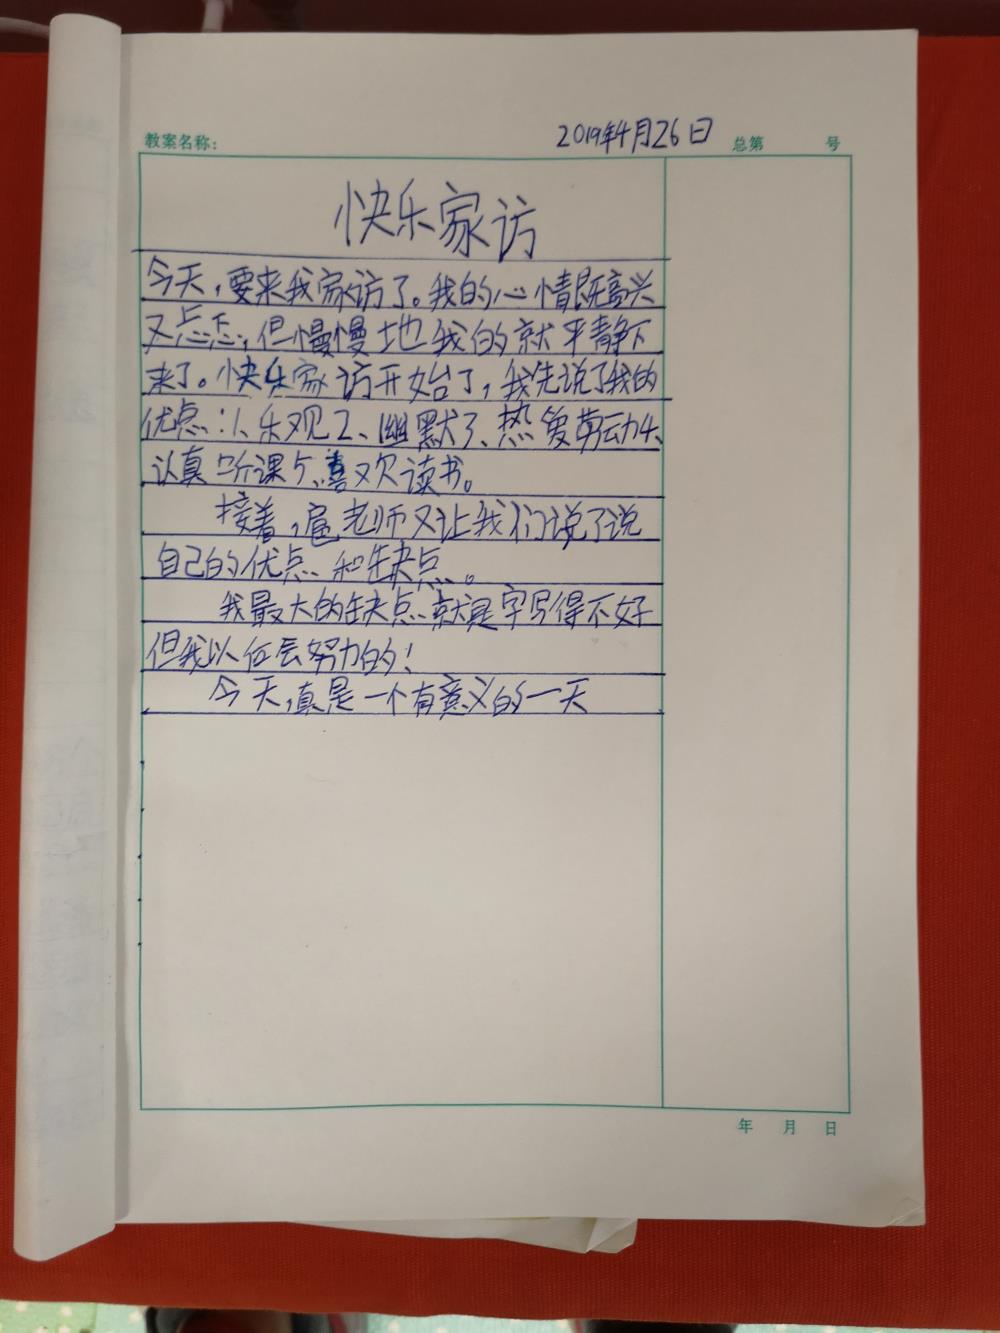 教案名称：
2019年4月26日
总第 号
快乐家访
今天，要来我家访了。我的心情既高兴
又忐忑，但慢慢地我的就平静下
来了。快乐家访开始了，我先说了我的
优点：1、乐观2、幽默3、热爱劳动4、
认真听课5、喜欢读书。
接着，扈老师又让我们说了说
自己的优点和缺点。
我最大的缺点就是字写得不好
但我以后会努力的！
今天，真是一个有意义的一天
年 月 日